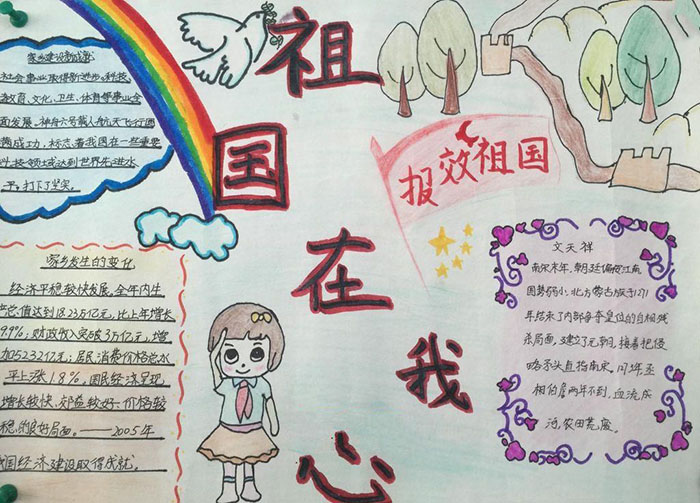 祖国在我心
报效祖国
家乡建设新成就
社会事业取得新进步。科技、
教育、文化、卫生、体育等事业全
面发展。神舟六号载人航天飞行圆
满成功,标志着我国在一些重要
科技领域达到世界先进水
平,打下了坚实
家乡发生的变化
经济平稳较快发展,全年内生
产总值达到18.23万亿元,比上年增长
9.9%;财政收入突破3万亿元,增
加5232亿元;居民消费价格总水
平上涨1.8%,国民经济呈现
增长较快、效益较好、价格较
稳的良好局面。——2005年
我国经济建设取得成就。
文天祥
南宋末年,朝廷偏安江南,
国势弱小,北方蒙古族于1271
年结束了内部争夺皇位的自相残
杀局面,建立了元朝,接着把侵
略矛头直指南宋。同年至
相伯启两年不到,血流成
河,农田荒废。